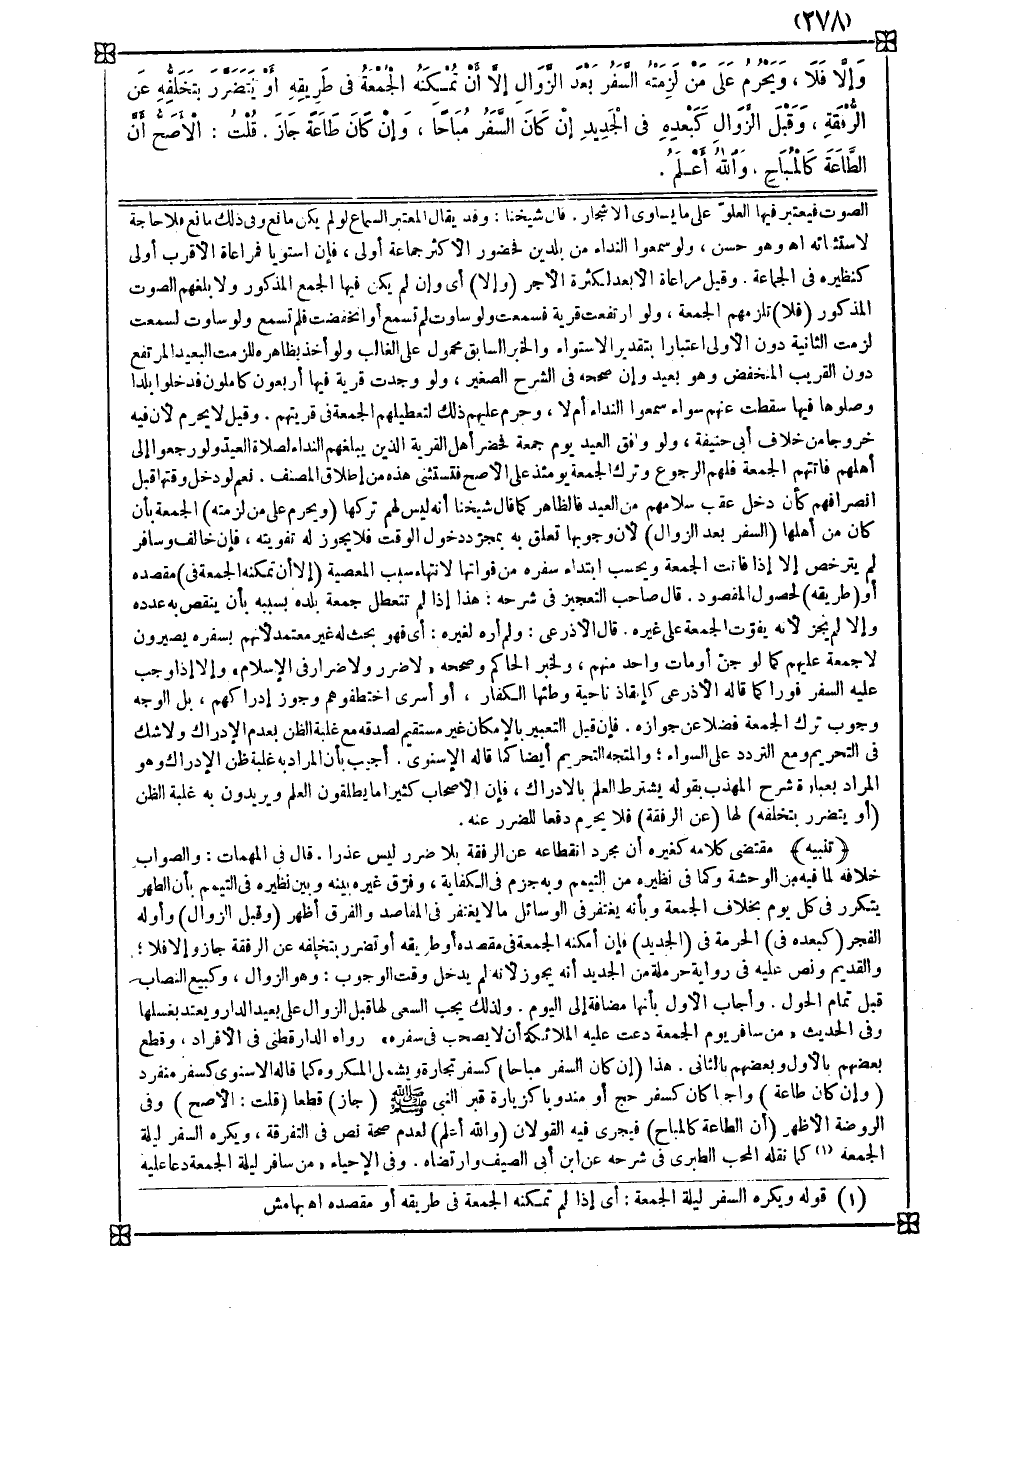 (٢٧٨)
وَإِلَّا فَلَا ، وَيَحْرُمُ عَلَى مَنْ لَزِمَتْهُ السَّفَرُ بَعْدَ الزَّوَالِ إِلَّا أَنْ تُمْكِنَهُ الْجُمُعَةُ فِى طَرِيقِهِ أَوْ يَتَضَرَّرَ بِتَخَلُّفِهِ عَنِ
الرُّفْقَةِ ، وَقَبْلَ الزَّوَالِ كَبَعْدِهِ فِى الْجَدِيدِ إِنْ كَانَ السَّفَرُ مُبَاحًا ، وَإِنْ كَانَ طَاعَةً جَازَ . قُلْتُ : الْأَصَحُّ أَنَّ
الطَّاعَةَ كَالْمُبَاحِ ، وَاللهُ أَعْلَمُ .
الصوت فيعتبر فيها العلوّ على ما يساوى الأشجار . قال شيخنا : وقد يقال المعتبر السماع لو لم يكن مانع وفى ذلك مانع فلا حاجة
لاستثنائه اه وهو حسن ، ولو سمعوا النداء من بلدين فحضور الأكثر جماعة أولى ، فإن استويا فمراعاة الأقرب أولى
كنظيره فى الجماعة . وقيل مراعاة الأبعد لكثرة الأجر (وإلا) أى وإن لم يكن فيها الجمع المذكور ولا بلغهم الصوت
المذكور (فلا) تلزمهم الجمعة ، ولو ارتفعت قرية فسمعت ولو ساوت لم تسمع أو انخفضت فلم تسمع ولو ساوت لسمعت
لزمت الثانية دون الأولى اعتبارا بتقدير الاستواء والخبر السابق محمول على الغالب ولو أخذ بظاهره للزمت البعيد المرتفع
دون القريب المنخفض وهو بعيد وإن صححه فى الشرح الصغير ، ولو وجدت قرية فيها أربعون كاملون فدخلوا بلدا
وصلوها فيها سقطت عنهم سواء سمعوا النداء أم لا ، وحرم عليهم ذلك لتعطيلهم الجمعة فى قريتهم . وقيل لا يحرم لأن فيه
خروجا من خلاف أبى حنيفة ، ولو وافق العيد يوم جمعة فحضر أهل القرية الذين يبلغهم النداء لصلاة العيد ولو رجعوا إلى
أهلهم فاتتهم الجمعة فلهم الرجوع وترك الجمعة يومئذ على الأصح فتستثنى هذه من إطلاق المصنف . نعم لو دخل وقتها قبل
انصرافهم كأن دخل عقب سلامهم من العيد فالظاهر كما قال شيخنا أنه ليس لهم تركها (ويحرم على من لزمته) الجمعة بأن
كان من أهلها (السفر بعد الزوال) لأن وجوبها تعلق به بمجرّد دخول الوقت فلا يجوز له تفويته ، فإن خالف وسافر
لم يترخص إلا إذا فاتت الجمعة ويحسب ابتداء سفره من فواتها لانتهاء سبب المعصية (إلا أن تمكنه الجمعة فى) مقصده
أو (طريقه) لحصول المقصود . قال صاحب التعجيز فى شرحه : هذا إذا لم تتعطل جمعة بلده بسببه بأن ينقص به عدده
وإلا لم يجز لأنه يفوّت الجمعة على غيره . قال الأذرعى : ولم أره لغيره : أى فهو بحث له غير معتمد لأنهم بسفره يصيرون
لا جمعة عليهم كما لو جنّ أو مات واحد منهم ، ولخبر الحاكم وصححه « لا ضرر ولا ضرار فى الإسلام » وإلا إذا وجب
عليه السفر فورا كما قاله الأذرعى كإنقاذ ناحية وطئها الكفار ، أو أسرى اختطفوهم وجوز إدراكهم ، بل الوجه
وجوب ترك الجمعة فضلا عن جوازه . فإن قيل التعبير بالإمكان غير مستقيم لصدقه مع غلبة الظن بعدم الإدراك ولا شك
فى التحريم ومع التردد على السواء ؛ والمتجه التحريم أيضا كما قاله الإسنوى . أجيب بأن المراد به غلبة ظن الإدراك وهو
المراد بعبارة شرح المهذب بقوله يشترط العلم بالادراك ، فإن الأصحاب كثيرا ما يطلقون العلم ويريدون به غلبة الظن
(أو يتضرر بتخلفه) لها (عن الرفقة) فلا يحرم دفعا للضرر عنه .
﴿ تنبيه ﴾ مقتضى كلامه كغيره أن مجرد انقطاعه عن الرفقة بلا ضرر ليس عذرا . قال فى المهمات : والصواب
خلافه لما فيه من الوحشة وكما فى نظيره من التيمم وبه جزم فى الكفاية ، وفرّق غيره بينه وبين نظيره فى التيمم بأن الطهر
يتكرر فى كل يوم بخلاف الجمعة وبأنه يغتفر فى الوسائل ما لا يغتفر فى المقاصد والفرق أظهر (وقبل الزوال) وأوله
الفجر (كبعده فى) الحرمة فى (الجديد) فإن أمكنه الجمعة فى مقصده أو طريقه أو تضرر بتخلفه عن الرفقة جاز وإلا فلا ؛
والقديم ونص عليه فى رواية حرملة من الجديد أنه يجوز لأنه لم يدخل وقت الوجوب : وهو الزوال ، وكبيع النصاب
قبل تمام الحول . وأجاب الأول بأنها مضافة إلى اليوم . ولذلك يجب السعى لها قبل الزوال على بعيد الدار ويعتد بغسلها
وفى الحديث « من سافر يوم الجمعة دعت عليه الملائكة أن لا يصحب فى سفره » رواه الدارقطنى فى الأفراد ، وقطع
بعضهم بالأول وبعضهم بالثانى . هذا (إن كان السفر مباحا) كسفر تجارة ويشمل المكروه كما قاله الاسنوى كسفر منفرد
(وإن كان طاعة) واجبا كان كسفر حج أو مندوبا كزيارة قبر النبى ﷺ (جاز) قطعا (قلت : الأصح) وفى
الروضة الأظهر (أن الطاعة كالمباح) فيجرى فيه القولان (والله أعلم) لعدم صحة نص فى التفرقة ، ويكره السفر ليلة
الجمعة (١) كما نقله المحب الطبرى فى شرحه عن ابن أبى الصيف وارتضاه . وفى الإحياء « من سافر ليلة الجمعة دعا عليه
(١) قوله ويكره السفر ليلة الجمعة : أى إذا لم تمكنه الجمعة فى طريقه أو مقصده اه بهامش